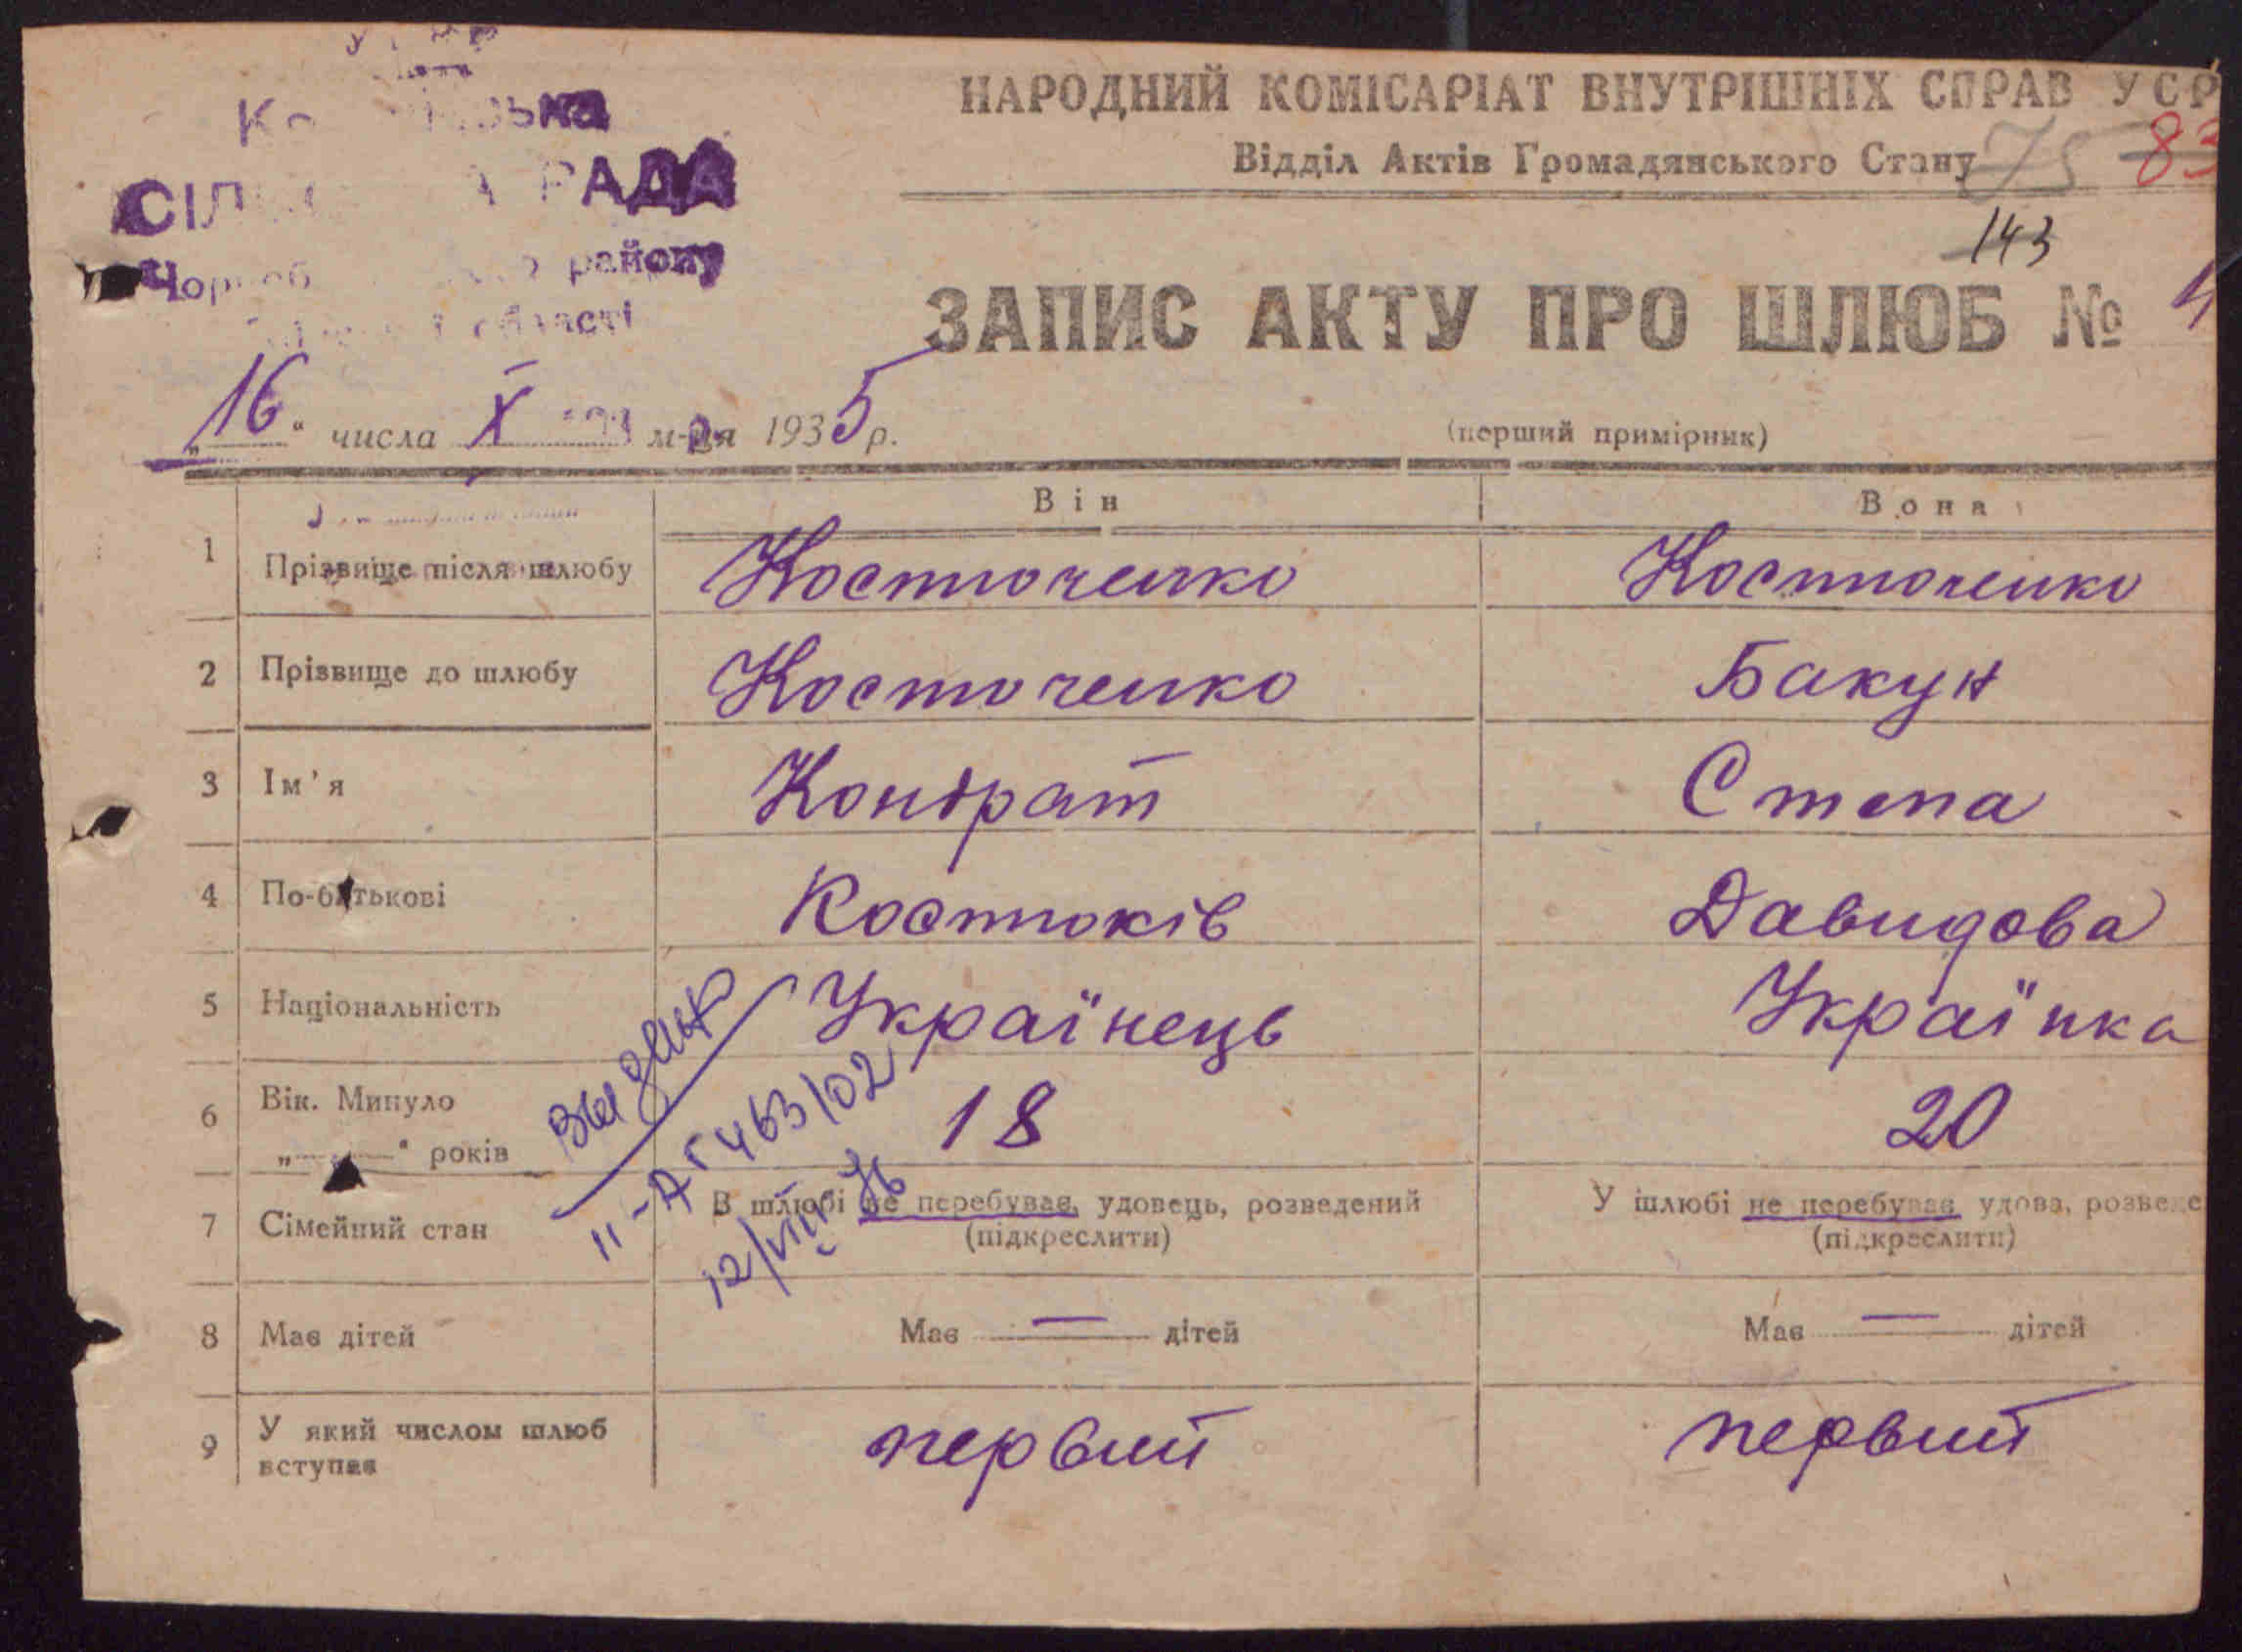 РАДА
району
області
НАРОДНИЙ КОМІСАРІАТ ВНУТРІШНІХ СПРАВ УСР
Відділ Актів Громадянського Стану
75 83
143
ЗАПИС АКТУ ПРО ШЛЮБ № 4
„16“ числа X м-ця 1935 р.
(перший примірник)
Він Вона
1 Прізвище після шлюбу Костюченко Костюченко
2 Прізвище до шлюбу Костюченко Бакун
3 Ім'я Кондрат Степа
4 По-батькові Костюків Давидова
5 Національність Українець Українка
6 Вік. Минуло „ “ років 18 20
7 Сімейний стан В шлюбі не перебуває, удовець, розведений У шлюбі не перебуває, удова, розведе
(підкреслити) (підкреслити)
8 Має дітей Має — дітей Має — дітей
9 У який числом шлюб вступає первий первий
II-АГ 463102
12/VIII